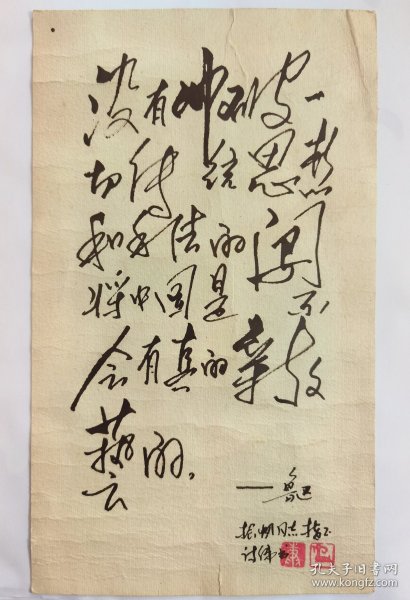 没有冲破一
切传统思想
和手法的闯
将中国是不
会有真的新文
藝的。
——鲁迅
同志指正
孔夫子旧书网
www.kongfz.com